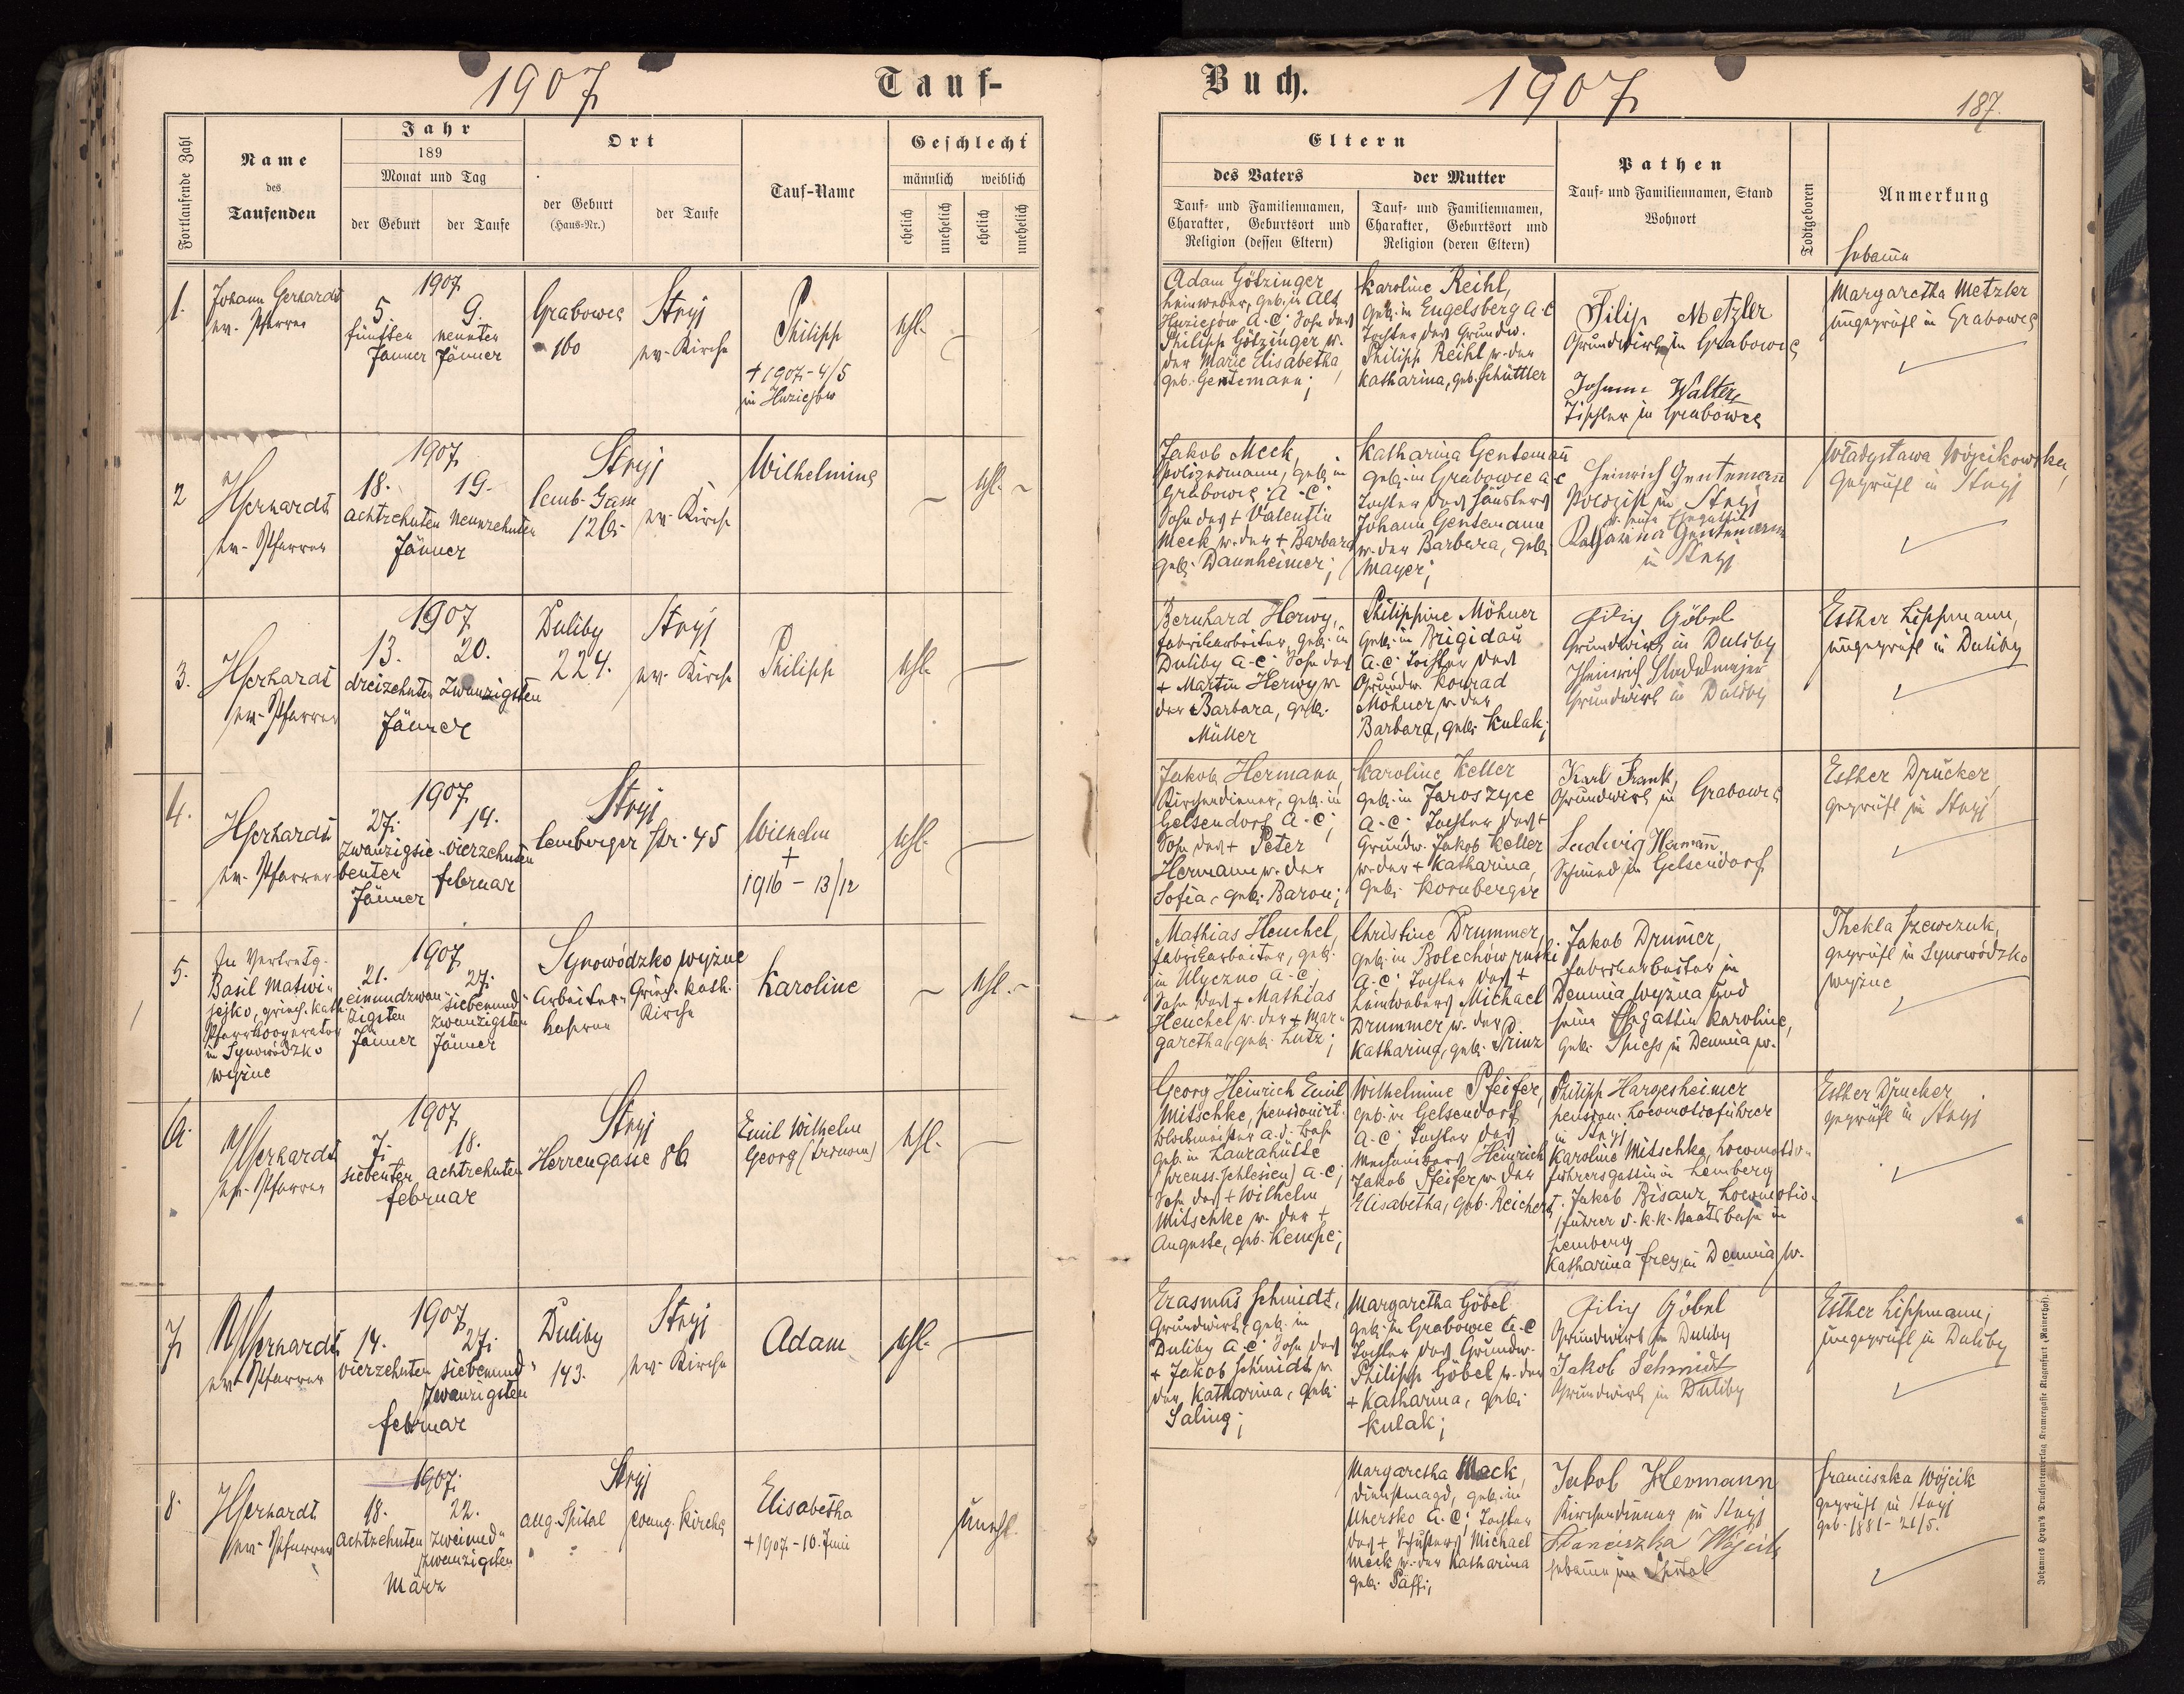 1907
Tauf-
Fortlaufende Zahl
Name
des
Taufenden
Jahr
189
Monat und Tag
der Geburt
der Taufe
Ort
der Geburt
(Haus-Nr.)
der Taufe
Tauf-Name
Geschlecht
männlich
weiblich
ehelich
unehelich
ehelich
unehelich
1.
Johann Gerhardt
ev. Pfarrer
1907
5. 9.
fünften neunten
Jänner Jänner
Grabowce
160
Stryj
ev. Kirche
Philipp
+ 1907 - 4/5
in Huziejow
ehl.
2
Gerhardt
ev. Pfarrer
1907
18. 19.
achtzehnten Neunzehnten
Jänner
Stryj
Lemb. Gasse
126.
ev. Kirche
Wilhelmine
ehl.
3.
Gerhardt
ev. Pfarrer
1907
13. 20.
dreizehnten Zwanzigsten
Jänner
Duliby
224.
Stryj
ev. Kirche
Philipp
ehl.
4.
Gerhardt
ev. Pfarrer
1907
27. 14.
Zwanzigsie- vierzehnten
benten februar
Jänner
Stryj
Lemberger Str. 45
Wilhelm
+
1916 - 13/12
ehl.
5.
In Vertretg.
Basil Matwi-
jejko, griech. kath.
Pfarrkooperator
in Synowódzko
wyżne
1907
21. 27.
einundzwan- siebenund-
zigsten zwanzigsten
Jänner Jänner
Synowódzko wyżne
Arbeiter-
kaserne
Griech. kath.
Kirche
Karoline
ehl.
6.
Gerhardt
ev. Pfarrer
1907
7. 18.
siebenten achtzehnten
februar
Stryj
Herrengasse 86
Emil Wilhelm
Georg (trinom)
ehl.
7
Gerhardt
ev. Pfarrer
1907
14. 27.
vierzehnten siebenund-
zwanzigsten
februar
Duliby
143.
Stryj
ev. Kirche
Adam
ehl.
8.
Gerhardt
ev. Pfarrer
1907.
18. 22.
achtzehnten zweiund-
zwanzigsten
März
Stryj
allg. Spital evang. Kirche
Elisabetha
+ 1907 - 10. Juni
unehl.
Buch.
1907
187.
Eltern
des Vaters
Tauf- und Familiennamen,
Charakter, Geburtsort und
Religion (dessen Eltern)
der Mutter
Tauf- und Familiennamen,
Charakter, Geburtsort und
Religion (deren Eltern)
Pathen
Tauf- und Familiennamen, Stand
Wohnort
Todtgeboren
Anmerkung
Hebamme
Adam Götzinger
Leinweber, geb. in Alt
Huziejow A. C. Sohn des
Philipp Götzinger u.
der Marie Elisabetha
geb. Gentemann;
Karoline Reihl,
geb. in Engelsberg A. C
Tochter des Grundw.
Philipp Reihl u. der
Katharina, geb. Schüttler
Filip Metzler
Grundwirt in Grabowce
Johann Walter,
Tischler in Grabowce
Margaretha Metzler
ungeprüft in Grabowce
Jakob Meck,
Polizeimann, geb. in
Grabowce A. C.
Sohn des + Valentin
Meck u. der + Barbara
geb. Dannheimer;
Katharina Gentemann
geb. in Grabowce A C
Tochter des Häuslers
Johann Gentemann
u. der Barbara, geb.
Mayer;
Heinrich Gentemann
Polizist in Stryj
u. seine Ehegattin
Katharina Gentemann
in Stryj
Władysława Wójcikowska,
geprüft in Stryj
Bernhard Herwy,
fabriksarbeiter, geb. in
Duliby A. C. Sohn des
+ Martin Herwy u.
der Barbara, geb.
Müller
Philippine Möhner
geb. in Brigidau
A. C. Tochter des
Grundw. Konrad
Möhner u. der
Barbara, geb. Kulak;
Filip Göbel
Grundwirt in Duliby
Heinrich Stadelmajer
Grundwirt in Duliby
Esther Lippmann,
ungeprüft in Duliby
Jakob Hermann,
Kirchendiener, geb. in
Gelsendorf A. C;
Sohn des + Peter
Hermann u. der
Sofia, geb. Baron;
Karoline Keller
geb. in Jaroszyce
A. C. Tochter des +
Grundw. Jakob Keller
u. der + Katharina,
geb. Kornberger
Karl Frank,
Grundwirt in Grabowce
Ludwig Hermann
Schmied in Gelsendorf
Esther Drucker,
geprüft in Stryj
Mathias Heuchel,
fabriksarbeiter, geb.
in Ulyczno A. C;
Sohn des + Mathias
Heuchel u. der + Mar-
garetha, geb. Lutz;
Christine Drummer,
geb. in Bolechów ruski
A. C; Tochter des +
Leinwebers Michael
Drummer u. der
Katharina, geb. Prinz
Jakob Drumer,
fabriksarbeiter in
Demnia wyżna und
seine Ehegattin Karoline,
geb. Spiess in Demnia w.
Thekla Szewczuk,
geprüft in Synowódzko
wyżne
Georg Heinrich Emil
Mitschke, pensioniert.
Blockmeister a. d. Bahn
geb. in Laurahütte
(preuss. Schlesien) A. C;
Sohn des + Wilhelm
Mitschke u. der +
Auguste, geb. Kempe;
Wilhelmine Pfeifer,
geb. in Gelsendorf
A. C; Tochter des
Mechanikers Heinrich
Jakob Pfeifer u. der
Elisabetha, geb. Reichert
Philipp Hargesheimer
pension. Locomotivführer
in Stryj
Karoline Mitschke, Locomotiv-
führersgattin in Lemberg
Jakob Bisanz, Locomotiv-
führer d. k. k. Staatsbahn in
Lemberg
Katharina Frey, in Demnia w.
Esther Drucker
geprüft in Stryj
Erasmus Schmidt,
Grundwirt, geb. in
Duliby A. C; Sohn des
+ Jakob Schmidt u.
der Katharina, geb.
Saling;
Margaretha Göbel
geb. in Grabowce A. C
Tochter des Grundw.
Philipp Göbel u. der
+ Katharina, geb.
Kulak;
Filip Göbel
Grundwirt in Duliby
Jakob Schmidt
Grundwirt in Duliby
Esther Lippmann,
ungeprüft in Duliby
Margaretha Meck,
Dienstmagd, geb. in
Uhersko A. C; Tochter
des + Schusters Michael
Meck u. der Katharina
geb. Paffi;
Jakob Hermann
Kirchendiener in Stryj
Franciszka Wójcik
Hebamme im Spital
Franciszka Wójcik
geprüft in Stryj
geb. 1881 - 21/5.
Johannes Heyn's Drucksortenverlag Kramergasse Klagenfurt (Rainerhof).